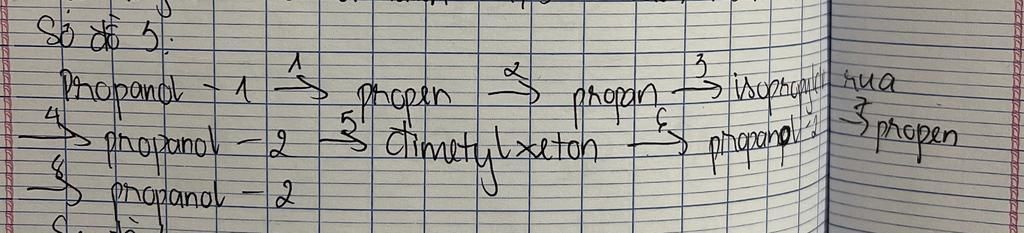 Sơ đồ 5:
Propanol - 1 1→ propen 2→ propan 3→ isopropyl
4→ propanol - 2 5→ đimetylxeton 6→ propanol-2 7→ propen
8→ propanol - 2